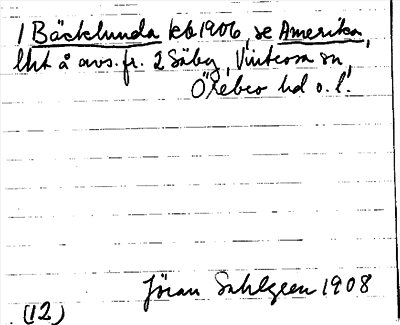 1 Bäcklunda kb 1906, se Amerika,
lht å avs. fr. 2 Säby, Vintrosa sn,
Örebro hd o. l.
Jöran Sahlgren 1908
(12)